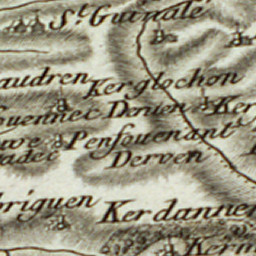 St. Guinalé
audren
Kerglochon
ouennec Denien Ker
Penfouenant
adec
Derven
briguen
Kerdannen